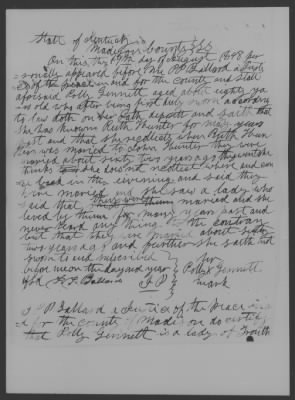 State of Kentucky
Madison County SS
On this the 19th day of August 1848 per
sonally appeared before me P P Ballard a Justi
ce of the peace in and for the county and State
aforesaid Polly Gennett aged about eighty ya
rs old who after being first duly sworn according
to law doth on her oath deposeth and saith that
she has known Ruth Hunter for many years
past and that she recollects when Ruth Hun
ter was married to John Hunter they were
married about sixty two years ago she
thinks she does not recollect where and
in the evening and said they
married she saw a lady who
said that married and she
lived by them for many years past and
never heard any thing to the contrary
but that they were married about sixty
two years ago and further she saith not
sworn to and subscribed her
before me on the day and year Polly X Gennett
P P Ballard J P mark
I P P Ballard a Justice of the Peace in an
d for the county of Madison do certify
that Polly Gennett is a lady of truth